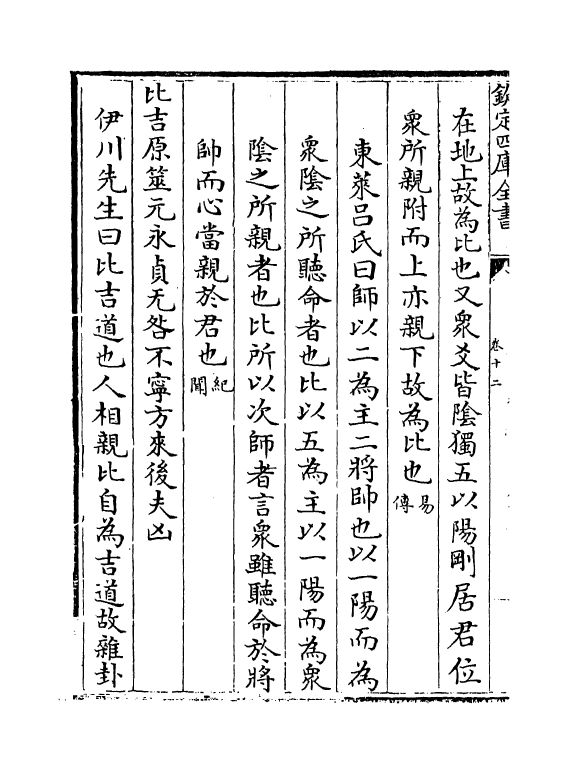 欽定四庫全書
卷十二
在地上故為比也又衆爻皆陰獨五以陽剛居君位
衆所親附而上亦親下故為比也易傳
東萊呂氏曰師以二為主二將帥也以一陽而為
衆陰之所聽命者也比以五為主以一陽而為衆
陰之所親者也比所以次師者言衆雖聽命於將
帥而心當親於君也紀聞
比吉原筮元永貞无咎不寧方來後夫凶
伊川先生曰比吉道也人相親比自為吉道故雜卦